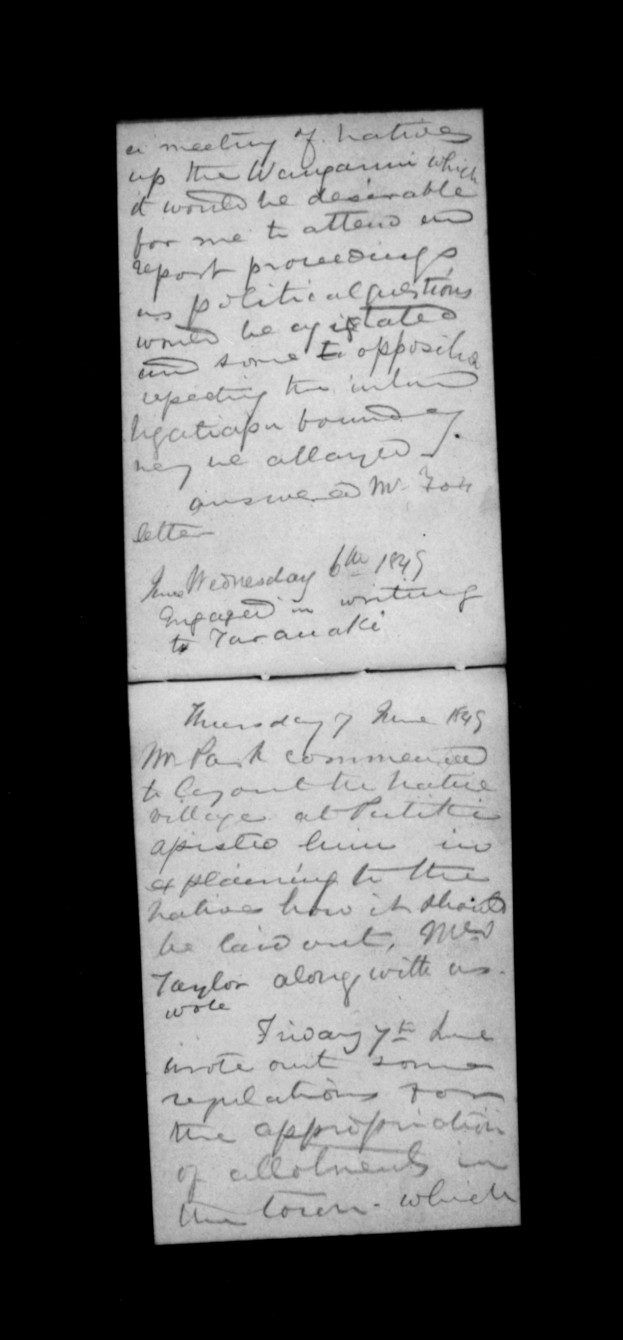 a meeting of Natives
up the Wanganui which
it would be desirable
for me to attend and
report proceedings
as political questions
would be agitated
and some to opposition
repecting the inland
Ngatiapa boundary
may be allayed.
answered Mr Fox
letter
June Wednesday 6th 1849
Engaged in writing
to Taranaki
Thursday 7 June 1849
Mr Park commenced
to layout the native
village at Putiki
assisted him in
explaining to the
natives how it should
be laid out, Mrs
Taylor along with us.
wrote
Friday 7th June
wrote out some
regulations for
the appropriation
of allotments in
the town. which